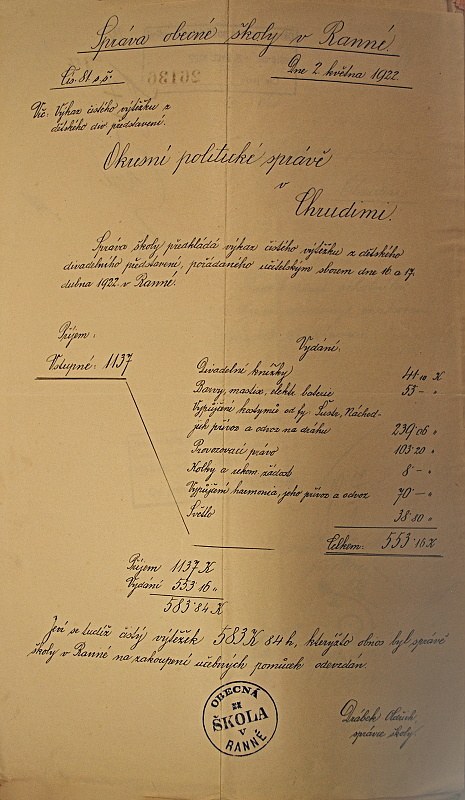 Správa obecné školy v Ranné.
Čís. 81 o. š.
Dne 2. května 1922
Věc: Výkaz čistého výtěžku z
dětského div představení.
Okresní politické správě
v
Chrudimi.
Správa školy předkládá výkaz čistého výtěžku z dětského
divadelního představení, pořádaného učitelským sborem dne 16 a 17.
dubna 1922 v Ranné.
Příjem:
Vstupné: 1137
Vydání:
Divadelní knížky K
Barvy, mastix, elektr. baterie 55 - "
Vypůjčení kostymů od fy. Náchod-
jich přívoz a odvoz na dráhu 239·06 "
Provozovací právo 103·20 "
Kolky a rekom. žádost 8 - "
Vypůjčení harmonia, jeho přívoz a odvoz 70 - "
Světlo 38·80 "
Celkem: 553·16 K
Příjem 1137 K
Vydání 553·16 "
583·84 K
Jeví se tudíž čistý výtěžek 583 K 84 h, kterýžto obnos byl správě
školy v Ranné na zakoupení učebných pomůcek odevzdán.
OBECNÁ
ŠKOLA
V
RANNÉ
Drábek
správce školy.